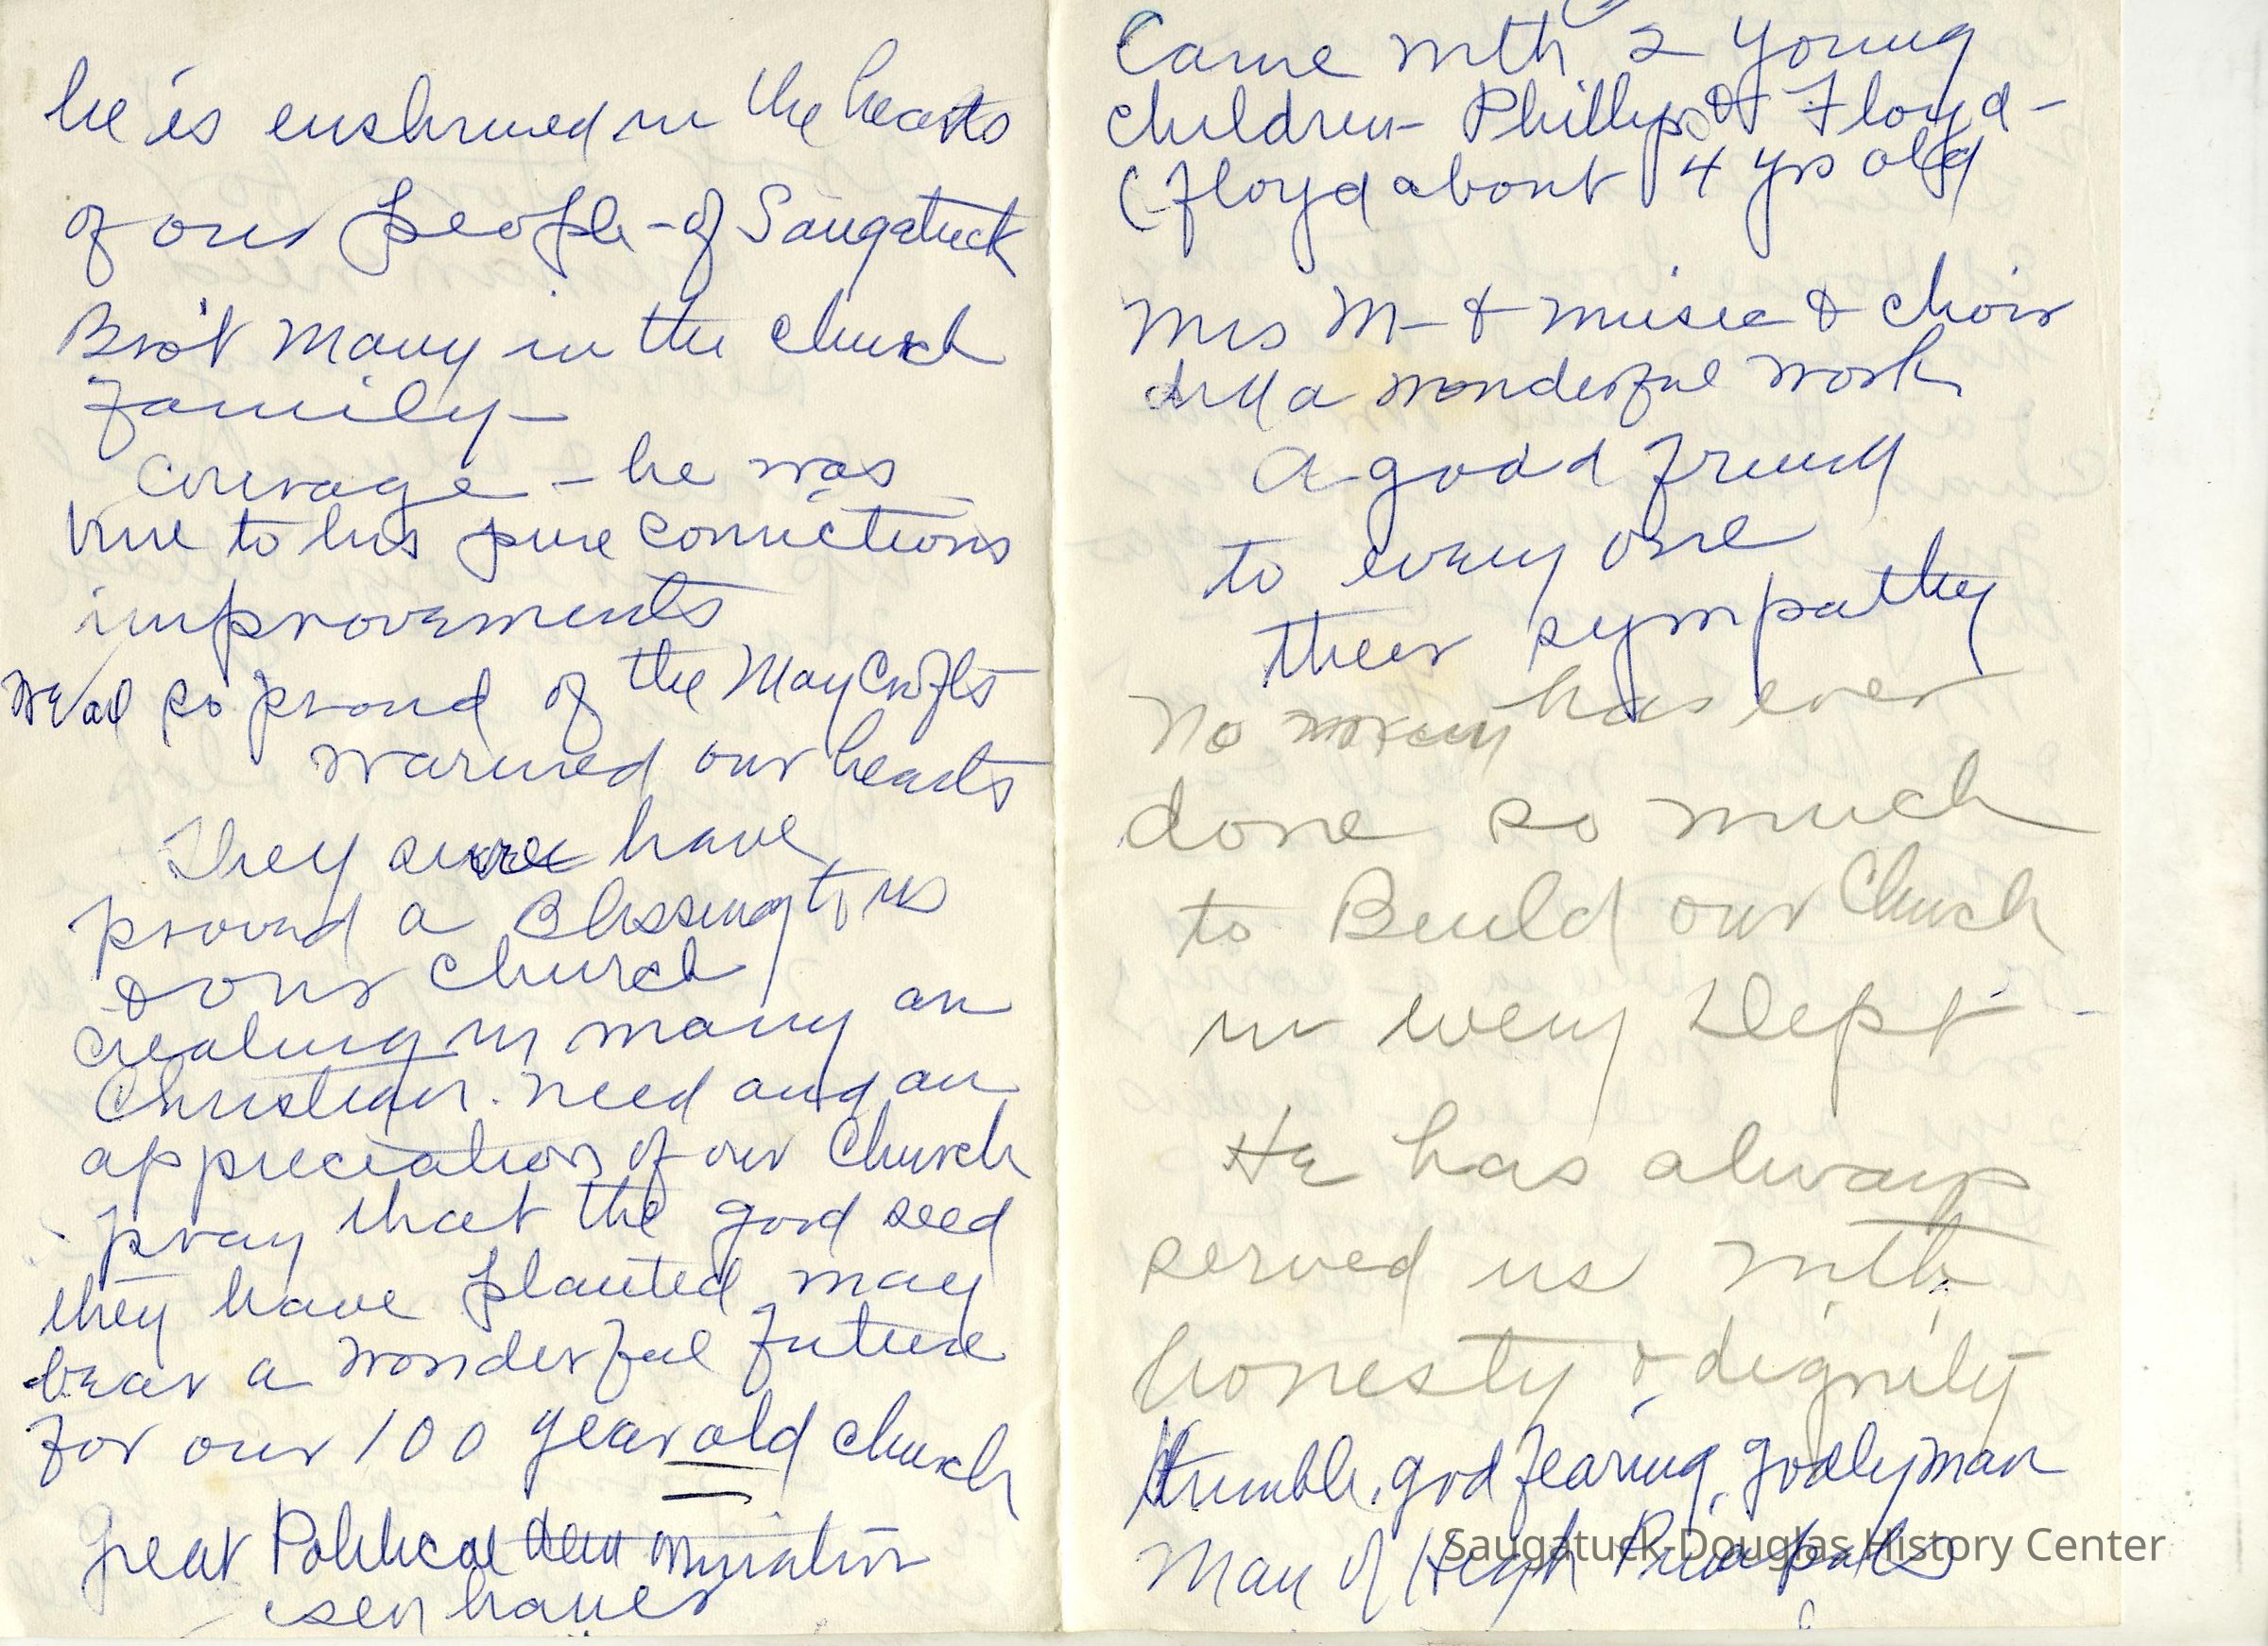 he is enshrined in the hearts
of our people - of Saugatuck
But many in the church
family -
Courage - he was
true to his pure convictions
improvements
We al so proud of the MayCrofts
warmed our hearts
They sure have
proved a Blessing to us
& our church
creating in many an
Christian. need and an
appreciation of our Church
pray that the good seed
they have planted may
bear a wonderful future
for our 100 year old church
Great Political
isenhauer
Came with 2 young
children - Phillips & Floyd -
(Floyd about 4 yrs old
Mrs M - & music & choir
did a wonderful work
A good friend
to every one
their sympathy
No has ever
done so much
to Build our Church
in every Dept -
He has always
served us with
honesty & dignity
Humble, god fearing, godly man
Man of High Principals
Saugatuck-Douglas History Center